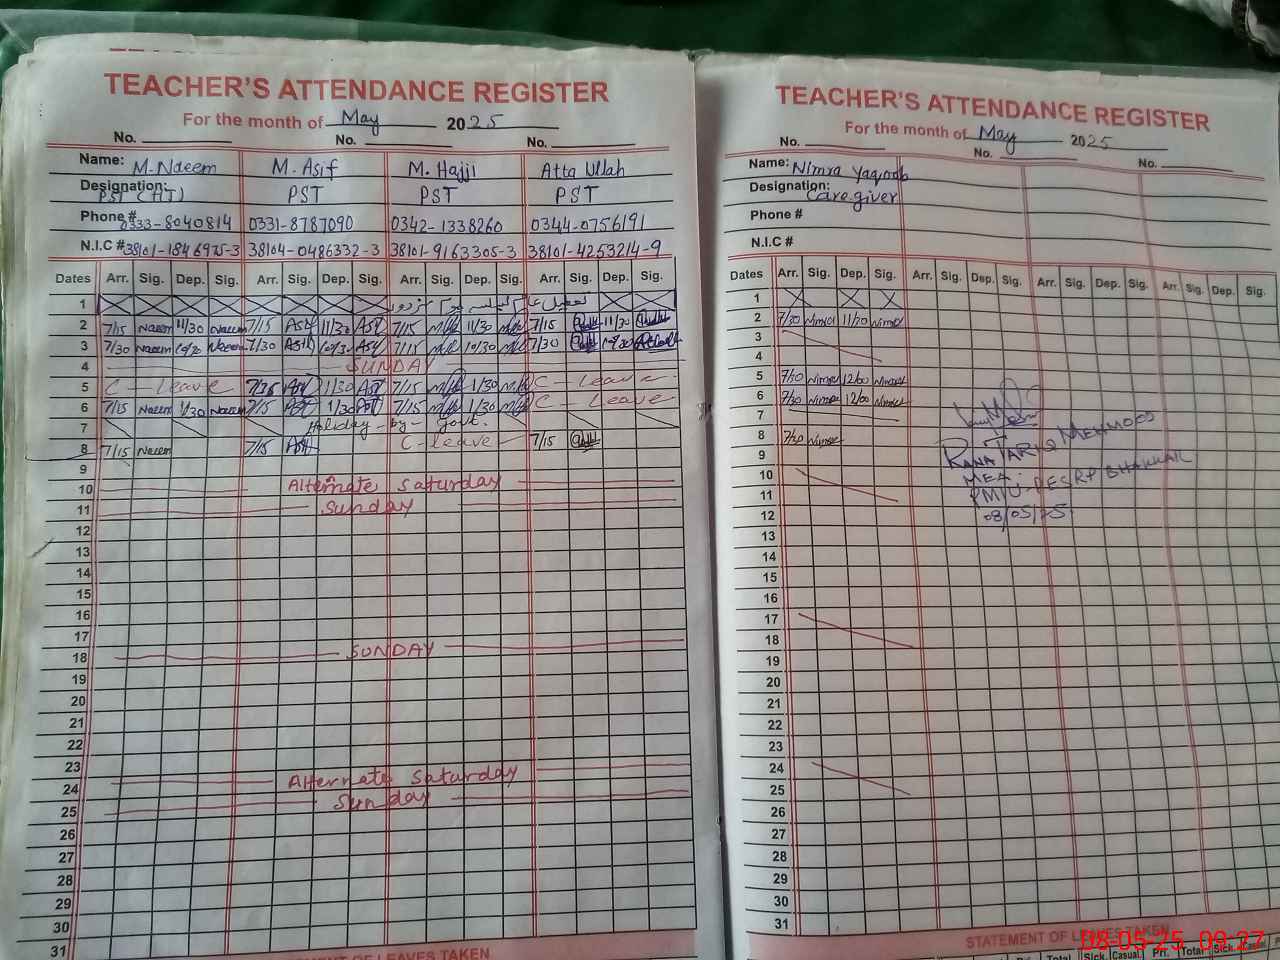 TEACHER'S ATTENDANCE REGISTER
For the month of May 2025
No. No. No.
Name: M. Naeem M. Asif M. Hajji Atta Ullah
Designation: PST (HT) PST PST PST
Phone # 0333-8040814 0331-8787090 0342-1338260 0344-0756191
N.I.C # 38101-1846975-3 38104-0486332-3 38101-9163305-3 38101-4253214-9
Dates Arr. Sig. Dep. Sig. Arr. Sig. Dep. Sig. Arr. Sig. Dep. Sig. Arr. Sig. Dep. Sig.
1 عام تعطیل
2 7/15 Naeem 11/30 Naeem 7/15 Asif 11/30 Asif 7/15 11/30 7/15 11/30
3 7/30 Naeem 10/30 Naeem 7/30 Asif 10/30 Asif 7/15 10/30 7/30 10/30
4 SUNDAY
5 C - Leave 7/35 Asif 1/30 Asif 7/15 1/30 C - Leave
6 7/15 Naeem 1/30 Naeem 7/15 Asif 1/30 Asif 7/15 1/30 C - Leave
7 Holiday - by - Govt.
8 7/15 Naeem 7/15 Asif C - leave 7/15
9
10 Alternate Saturday
11 Sunday
12
13
14
15
16
17
18 SUNDAY
19
20
21
22
23
24 Alternate Saturday
25 Sunday
26
27
28
29
30
31
STATEMENT OF LEAVES TAKEN
TEACHER'S ATTENDANCE REGISTER
For the month of May 2025
No. No. No.
Name: Nimra Yaqoob
Designation: Care giver
Phone #
N.I.C #
Dates Arr. Sig. Dep. Sig. Arr. Sig. Dep. Sig. Arr. Sig. Dep. Sig. Arr. Sig. Dep. Sig.
1
2 7/30 Nimra 11/30 Nimra
3
4
5 7/30 Nimra 12/00 Nimra
6 7/30 Nimra 12/00 Nimra
7
8 7/30 Nimra
9
10
11
12
13
14
15
16
17
18
19
20
21
22
23
24
25
26
27
28
29
30
31
RANA TARIQ MEHMOOD
MEA
PMIU-PESRP BHAKKAR
08/05/25
STATEMENT OF LEAVES TAKEN
Pri. Total Sick Casual Pri. Total Sick Casual
08-05-25 09:27